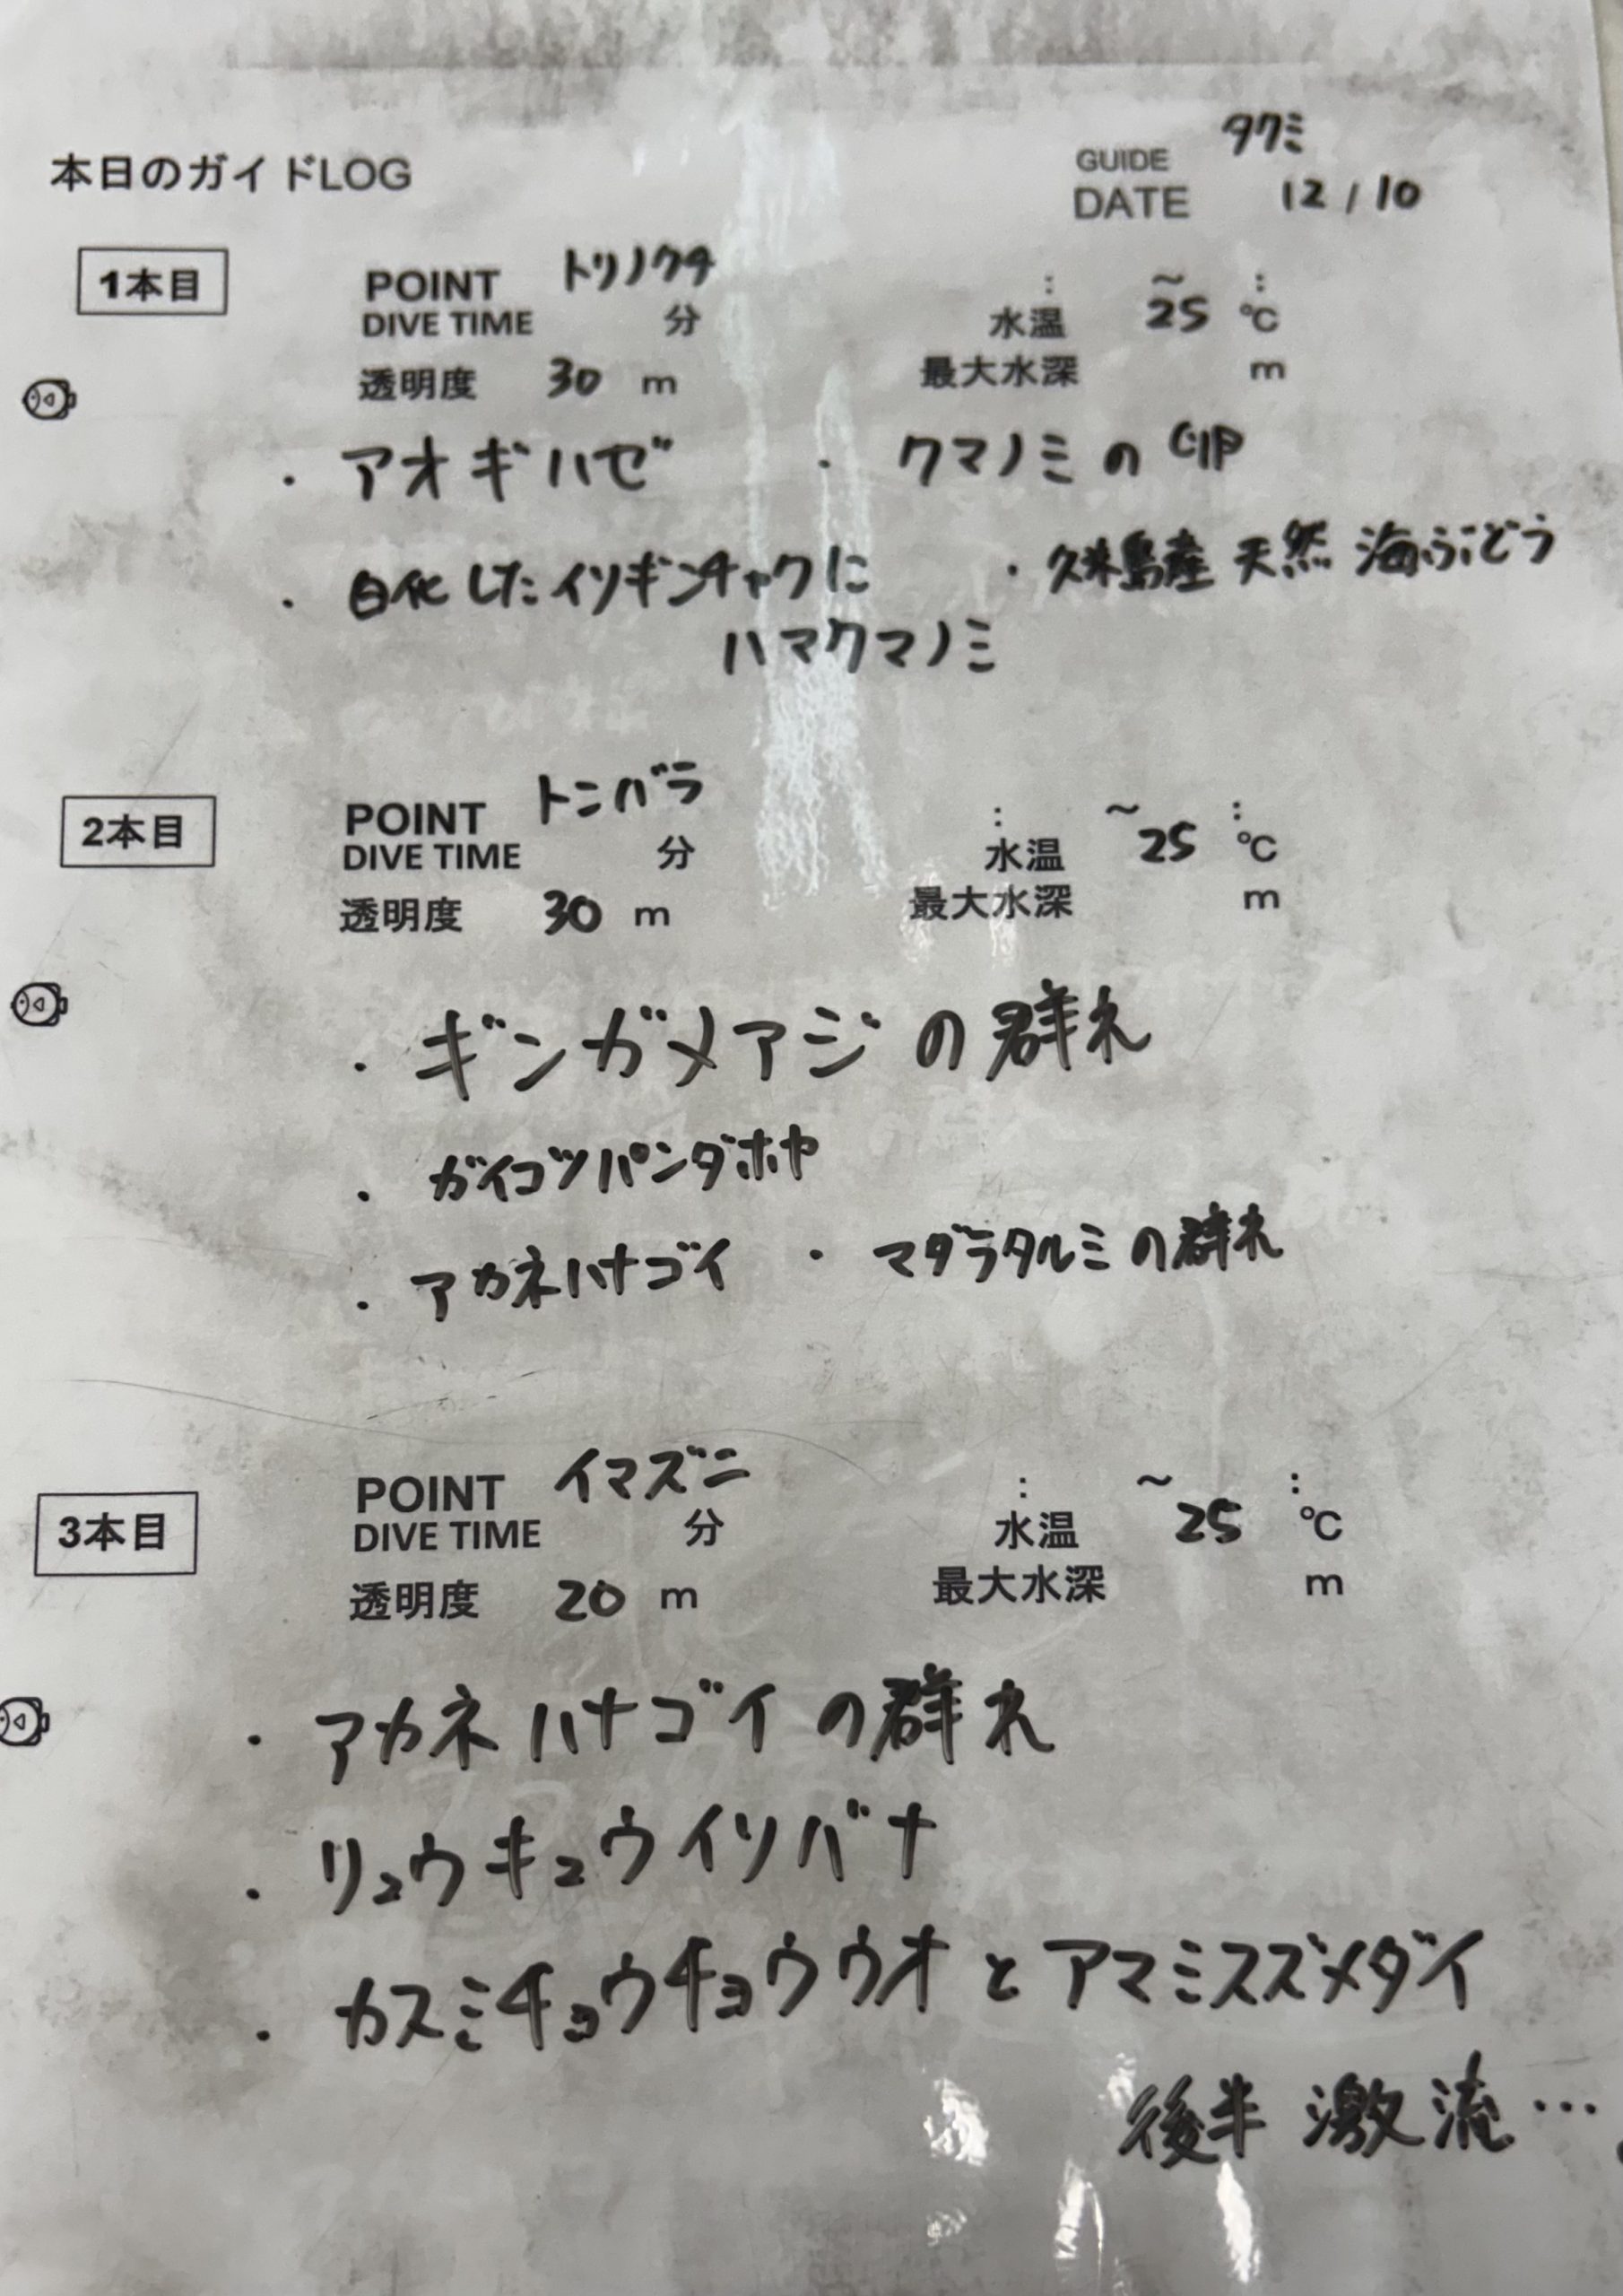 本日のガイドLOG
GUIDE タクミ
DATE 12/10
1本目
POINT トリノクチ
: ~ :
DIVE TIME 分 水温 25 ℃
透明度 30 m 最大水深 m
・アオギハゼ ・クマノミの卵
・白化したイソギンチャクに ・久米島産 天然 海ぶどう
ハマクマノミ
2本目
POINT トンバラ
: ~ :
DIVE TIME 分 水温 25 ℃
透明度 30 m 最大水深 m
・ギンガメアジの群れ
・ガイコツパンダホヤ
・アカネハナゴイ ・マダラタルミの群れ
3本目
POINT イマズニ
: ~ :
DIVE TIME 分 水温 25 ℃
透明度 20 m 最大水深 m
・アカネハナゴイの群れ
・リュウキュウイソバナ
・カスミチョウチョウウオとアマミスズメダイ
後半 激流…。